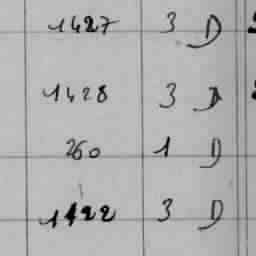 1427 3 D
1428 3 D
260 1 D
1422 3 D